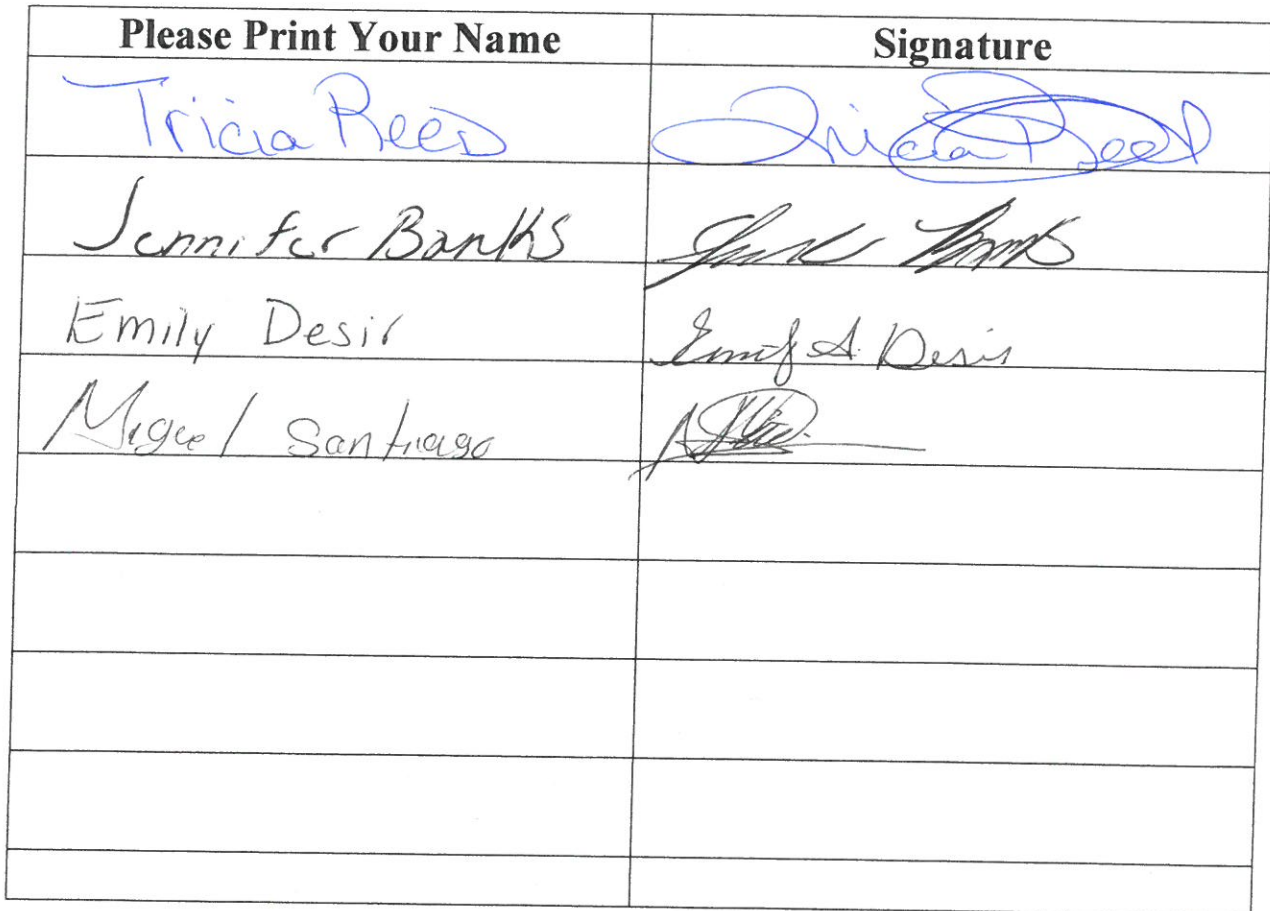 Please Print Your Name Signature
Tricia Reed Tricia Reed
Jennifer Banks
Emily Desir Emily A. Desir
Miguel Santiago